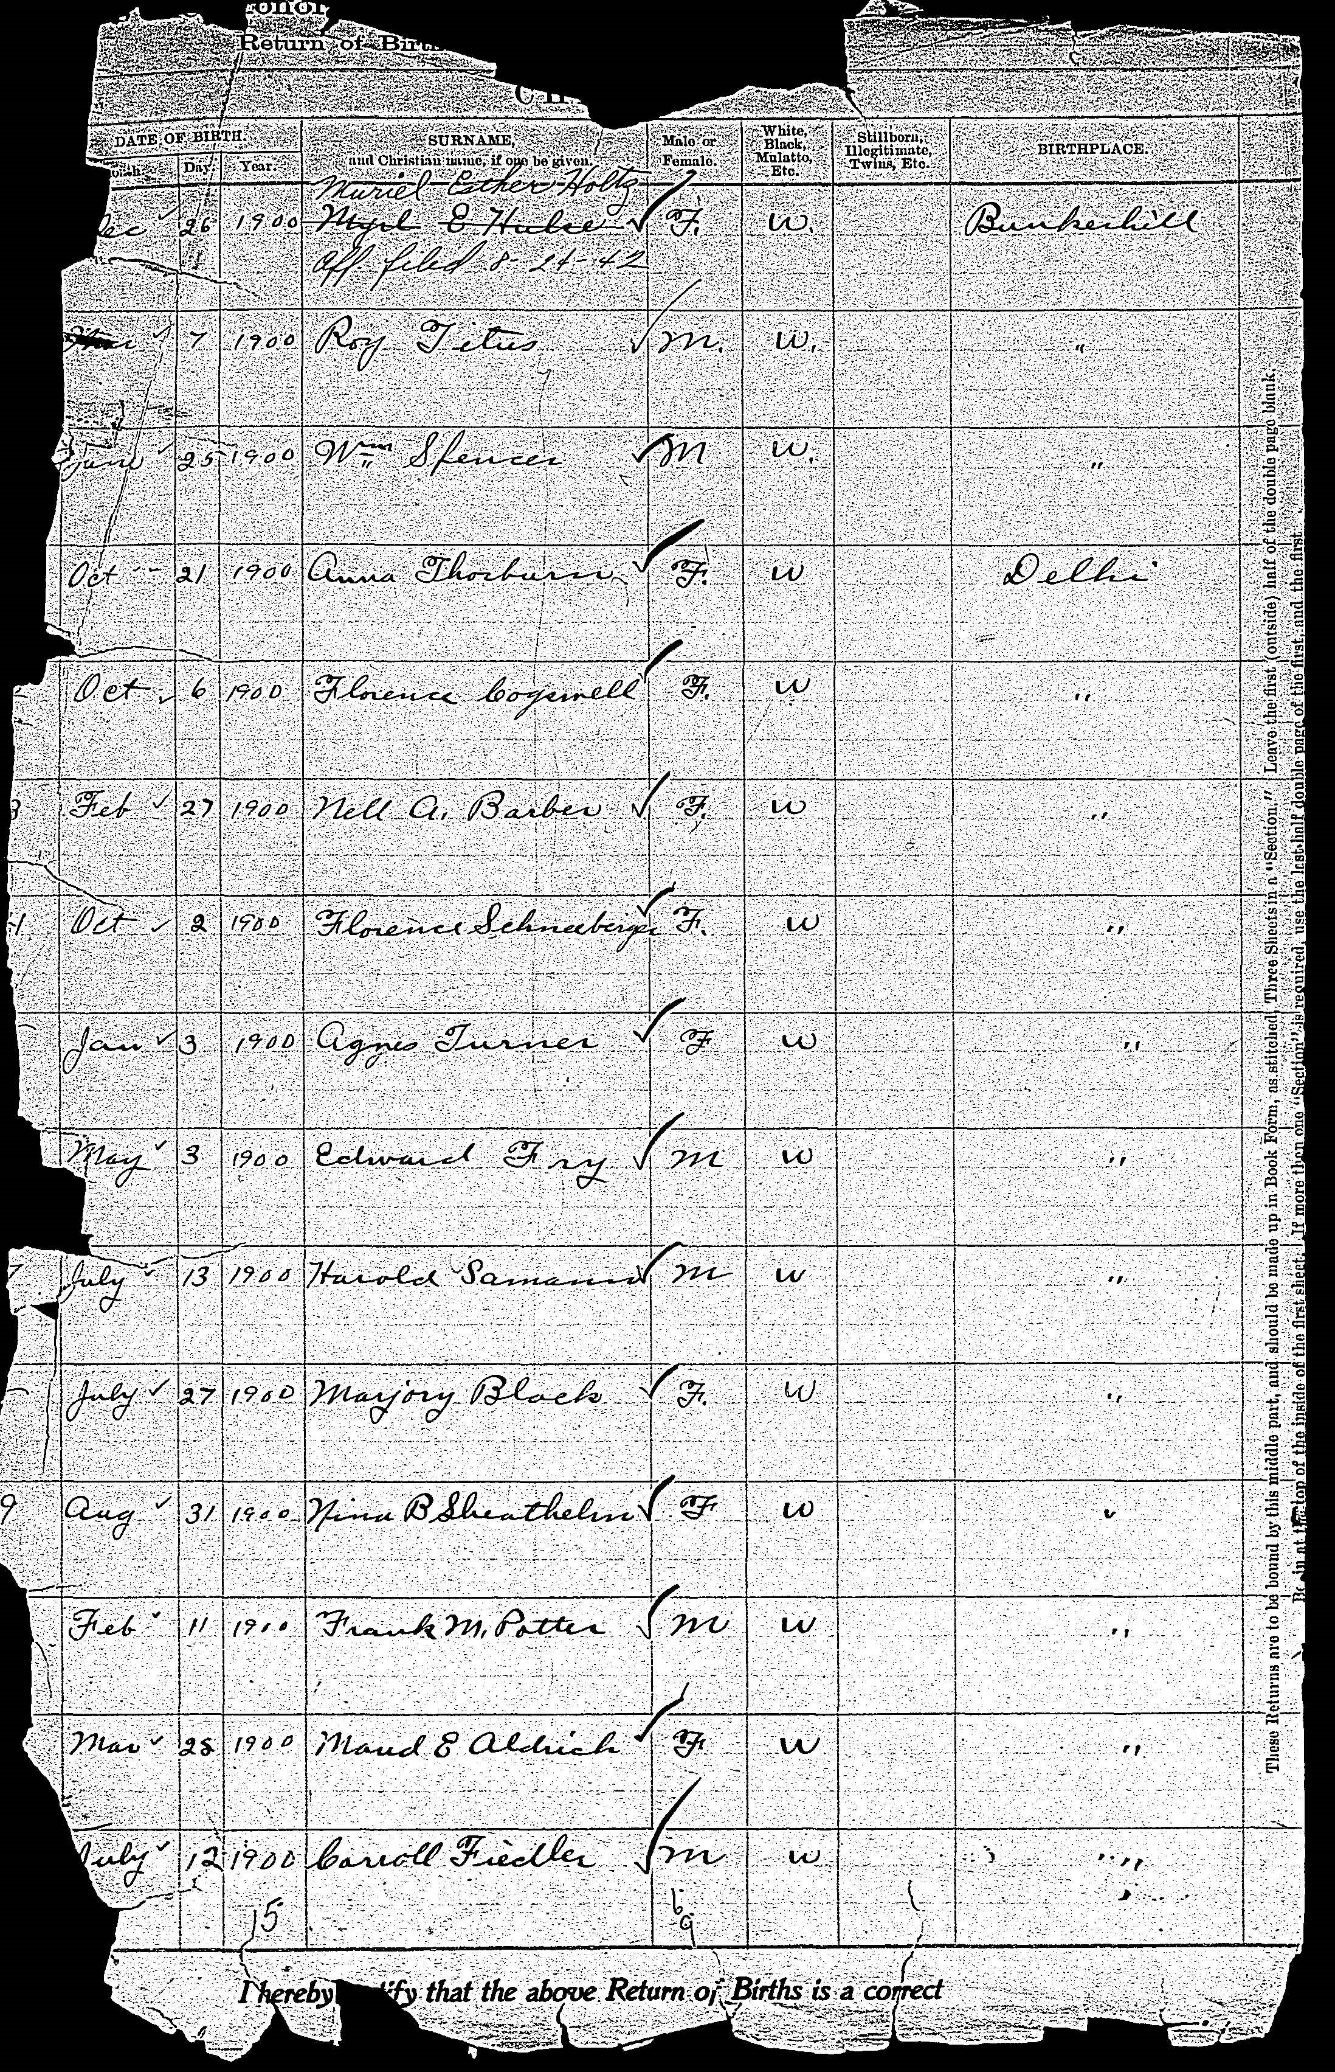 Return of Birt
DATE OF BIRTH.
Day. Year.
SURNAME,
and Christian name, if one be given.
Male or
Female.
White,
Black,
Mulatto,
Etc.
Stillborn,
Illegitimate,
Twins, Etc.
BIRTHPLACE.
Muriel Esther Holtz
Dec 26 1900 Myrl E Hulse F. W. Bunkerhill
Aff. filed 8-24-42
7 1900 Roy Titus M. W. "
June 25 1900 Wm Spencer M W. "
Oct 21 1900 Anna Thorburn F. W Delhi
Oct 6 1900 Florence Cogswell F. W "
Feb 27 1900 Nell A. Barber F. W "
Oct 2 1900 Florence Schneeberger F. W "
Jan 3 1900 Agnes Turner F W "
May 3 1900 Edward Fry M W "
July 13 1900 Harold Samann M W "
July 27 1900 Marjory Black F. W "
9 Aug 31 1900 Nina B Sheathelm F W "
Feb 11 1900 Frank M. Potter M W "
Mar 28 1900 Maud E Aldrich F W "
July 12 1900 Carroll Fiedler M W "
15 6
9
I hereby tify that the above Return of Births is a correct
These Returns are to be bound by this middle part, and should be made up in Book Form, as stitched, Three Sheets in a "Section." Leave the first (outside) half of the double page blank.
Begin at the top of the inside of the first sheet. If more than one "Section" is required, use the last half double page of the first, and the first